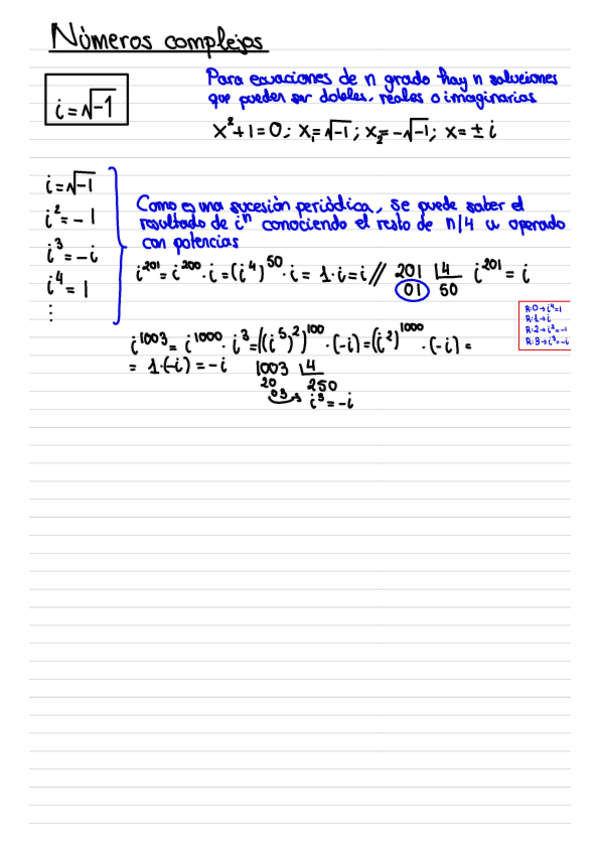 Números complejos
i = √-1
Para ecuaciones de n grado hay n soluciones
que pueden ser dobles, reales o imaginarias
x² + 1 = 0; x₁ = √-1; x₂ = -√-1; x = ± i
i = √-1
i² = -1
i³ = -i
i⁴ = 1
⋮
Como es una sucesión periódica, se puede saber el
resultado de iⁿ conociendo el resto de n/4 u operado
con potencias
i²⁰¹ = i²⁰⁰ · i = (i⁴)⁵⁰ · i = 1 · i = i // 201 |4 i²⁰¹ = i
01 50
R:0 → i⁴ = 1
R:1 → i
R:2 → i² = -1
R:3 → i³ = -i
i¹⁰⁰³ = i¹⁰⁰⁰ · i³ = ((i⁵)²)¹⁰⁰ · (-i) = (i²)¹⁰⁰⁰ · (-i) =
= 1 · (-i) = -i 1003 |4
20 250
03 → i³ = -i